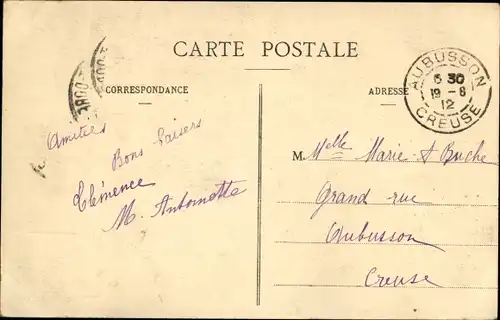 CARTE POSTALE
CORRESPONDANCE
ADRESSE
AUBUSSON
30
19 - 8
12
CREUSE
Amitiés
Bons baisers
Clémence
M. Antoinette
M. Melle Marie
Grand rue
Aubusson
Creuse